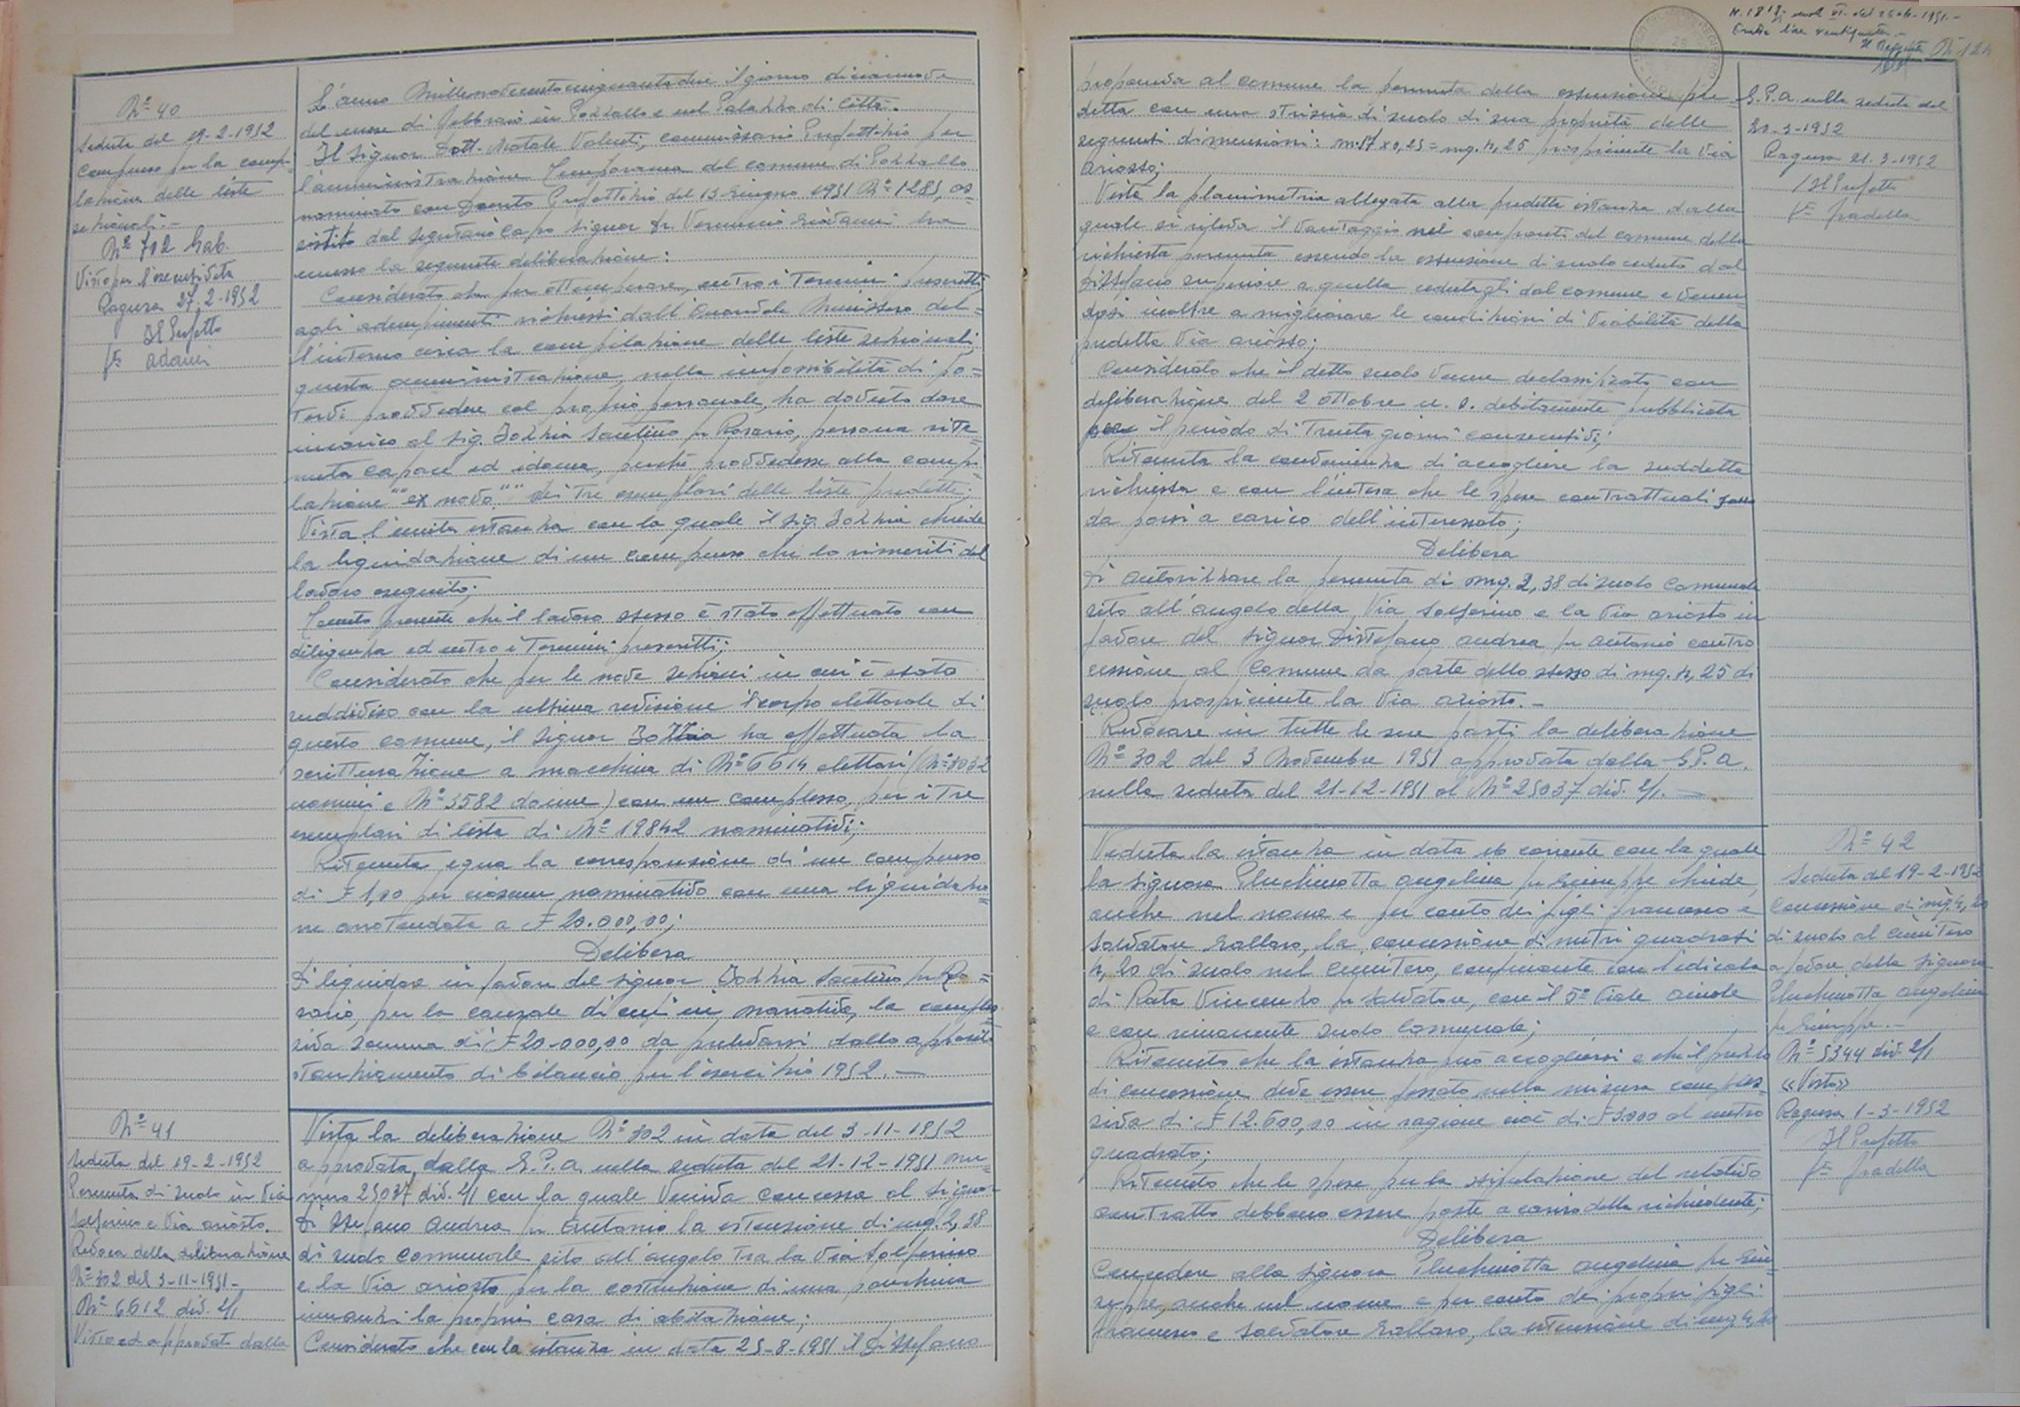 Nº 40
Seduta del 19-2-1952
Compenso per la compi-
lazione delle liste
sezionali.-
Nº 702 Gab.
Visto per l'esecutività
Ragusa 27-2-1952
Il Prefetto
fº Adami
L'anno Millenovecentocinquantadue il giorno diciannove
del mese di Febbraio in Pozzallo e nel Palazzo di Città.
Il Signor Dott. Natale Valenti, commissario Prefettizio per
l'amministrazione Temporanea del comune di Pozzallo
nominato con Decreto Prefettizio del 13 Giugno 1951 Nº 1285, as=
sistito dal segretario capo signor Dr. Giovanni ha
emesso la seguente deliberazione:
Considerato che per ottemperare, entro i Termini prescritti
agli adempimenti richiesti dall'Onorevole Ministero del=
l'interno circa la compilazione delle liste sezionali,
questa amministrazione, nella impossibilità di po=
tervi provvedere col proprio personale, ha dovuto dare
incarico al Sig. Zozzia Santino fu Rosario, persona rite=
nuta capace ed idonea, perchè provvedesse alla compi=
lazione "" ex novo "" dei tre esemplari delle liste predette;
Vista l'unita istanza con la quale il Sig. Zozzia chiede
la liquidazione di un compenso che lo rimeriti del
lavoro eseguito;
Tenuto presente che il lavoro stesso è stato effettuato con
diligenza ed entro i Termini prescritti;
Considerato che per le nove sezioni in cui è stato
suddiviso con la ultima revisione il corpo elettorale di
questo comune, il Signor Zozzia ha effettuata la
scritturazione a macchina di Nº 6614 elettori (Nº 3032
uomini e Nº 3582 donne) con un complesso, per i tre
esemplari di lista di Nº 19842 nominativi;
Ritenuta equa la corresponsione di un compenso
di £ 1,00 per ciascun nominativo con una liquidazio
ne arrotondata a £ 20.000,00;
Delibera
Di liquidare in favore del signor Zozzia Santino fu Ro=
sario, per la causale di cui in narrativa, la comples
siva somma di £ 20.000,00 da prelevarsi dallo apposito
stanziamento di bilancio per l'esercizio 1952.-
Nº 41
Seduta del 19-2-1952
Permuta di suolo in Via
Solferino e Via Ariosto.
Revoca della deliberazione
Nº 302 del 3-11-1951-
Nº 6612 div. 2/1
Visto ed approvato dalla
Vista la deliberazione Nº 302 in data del 3-11-1952
approvata dalla G.P.A. nella seduta del 21-12-1951 nu=
mero 25037 div. 2/1 con la quale veniva concessa al Signor
Di Stefano Andrea fu Antonio la estensione di mq. 2,38
di suolo comunale sito all'angolo Tra la Via Solferino
e la Via Ariosto per la costruzione di una panchina
innanzi la propria casa di abitazione;
Considerato che con la istanza in data 25-8-1951 il Distefano
proponeva al comune la permuta della estensione pre
detta con una striscia di suolo di sua proprietà delle
seguenti dimensioni: m. 17 x 0,25 = mq. 4,25 prospiciente la Via
Ariosto;
Vista la planimetria allegata alla predetta istanza dalla
quale si rileva il vantaggio nei confronti del comune della
richiesta permuta essendo la estensione di suolo ceduto dal
Distefano superiore a quella cedutagli dal comune e venen
dosi inoltre a migliorare le condizioni di viabilità della
predetta Via Ariosto;
Considerato che il detto suolo venne declassificato con
deliberazione del 2 ottobre u.s. debitamente pubblicata
per il periodo di Trenta giorni consecutivi;
Ritenuta la convenienza di accogliere la suddetta
richiesta e con l'intesa che le spese contrattuali
da porsi a carico dell'interessato;
Delibera
Di Autorizzare la permuta di mq. 2,38 di suolo comunale
sito all'angolo della Via Solferino e la Via Ariosto in
favore del Signor Distefano Andrea fu Antonio contro
cessione al Comune da parte dello stesso di mq. 4,25 di
suolo prospiciente la Via Ariosto.-
Revocare in tutte le sue parti la deliberazione
Nº 302 del 3 Novembre 1951 approvata dalla G.P.A.
nella seduta del 21-12-1951 al Nº 25037 div. 2/1.-
G.P.A. nella seduta del
20-3-1952
Ragusa 21.3-1952
Il Prefetto
fº Gradella
Veduta la istanza in data 16 corrente con la quale
la signora Pluchinotta Angelina fu Giuseppe chiede,
anche nel nome e per conto dei figli Francesco e
Salvatore Gallaro, la concessione di metri quadrati
4,20 di suolo nel cimitero, confinante con l'edicola
di Rata Vincenzo fu Salvatore, con il 5º Viale
e con rimanente suolo Comunale;
Ritenuto che la istanza può accogliersi e che il prezzo
di concessione deve essere fissato nella misura comples
siva di £ 12.600,00 in ragione cioè di £ 3.000 al metro
quadrato;
Ritenuto che le spese per la stipulazione del relativo
contratto debbono essere poste a carico della richiedente;
Delibera
Concedere alla Signora Pluchinotta Angelina fu Giu=
seppe, anche nel nome e per conto dei propri figli
Francesco e Salvatore Gallaro, la estensione di mq 4,20
Nº 42
Seduta del 19-2-1952
Concessione di mq. 4,20
di suolo al cimitero
a favore della Signora
Pluchinotta Angelina
fu Giuseppe.-
Nº 5344 div. 2/1
«Visto»
Ragusa 1-3-1952
Il Prefetto
fº Gradella